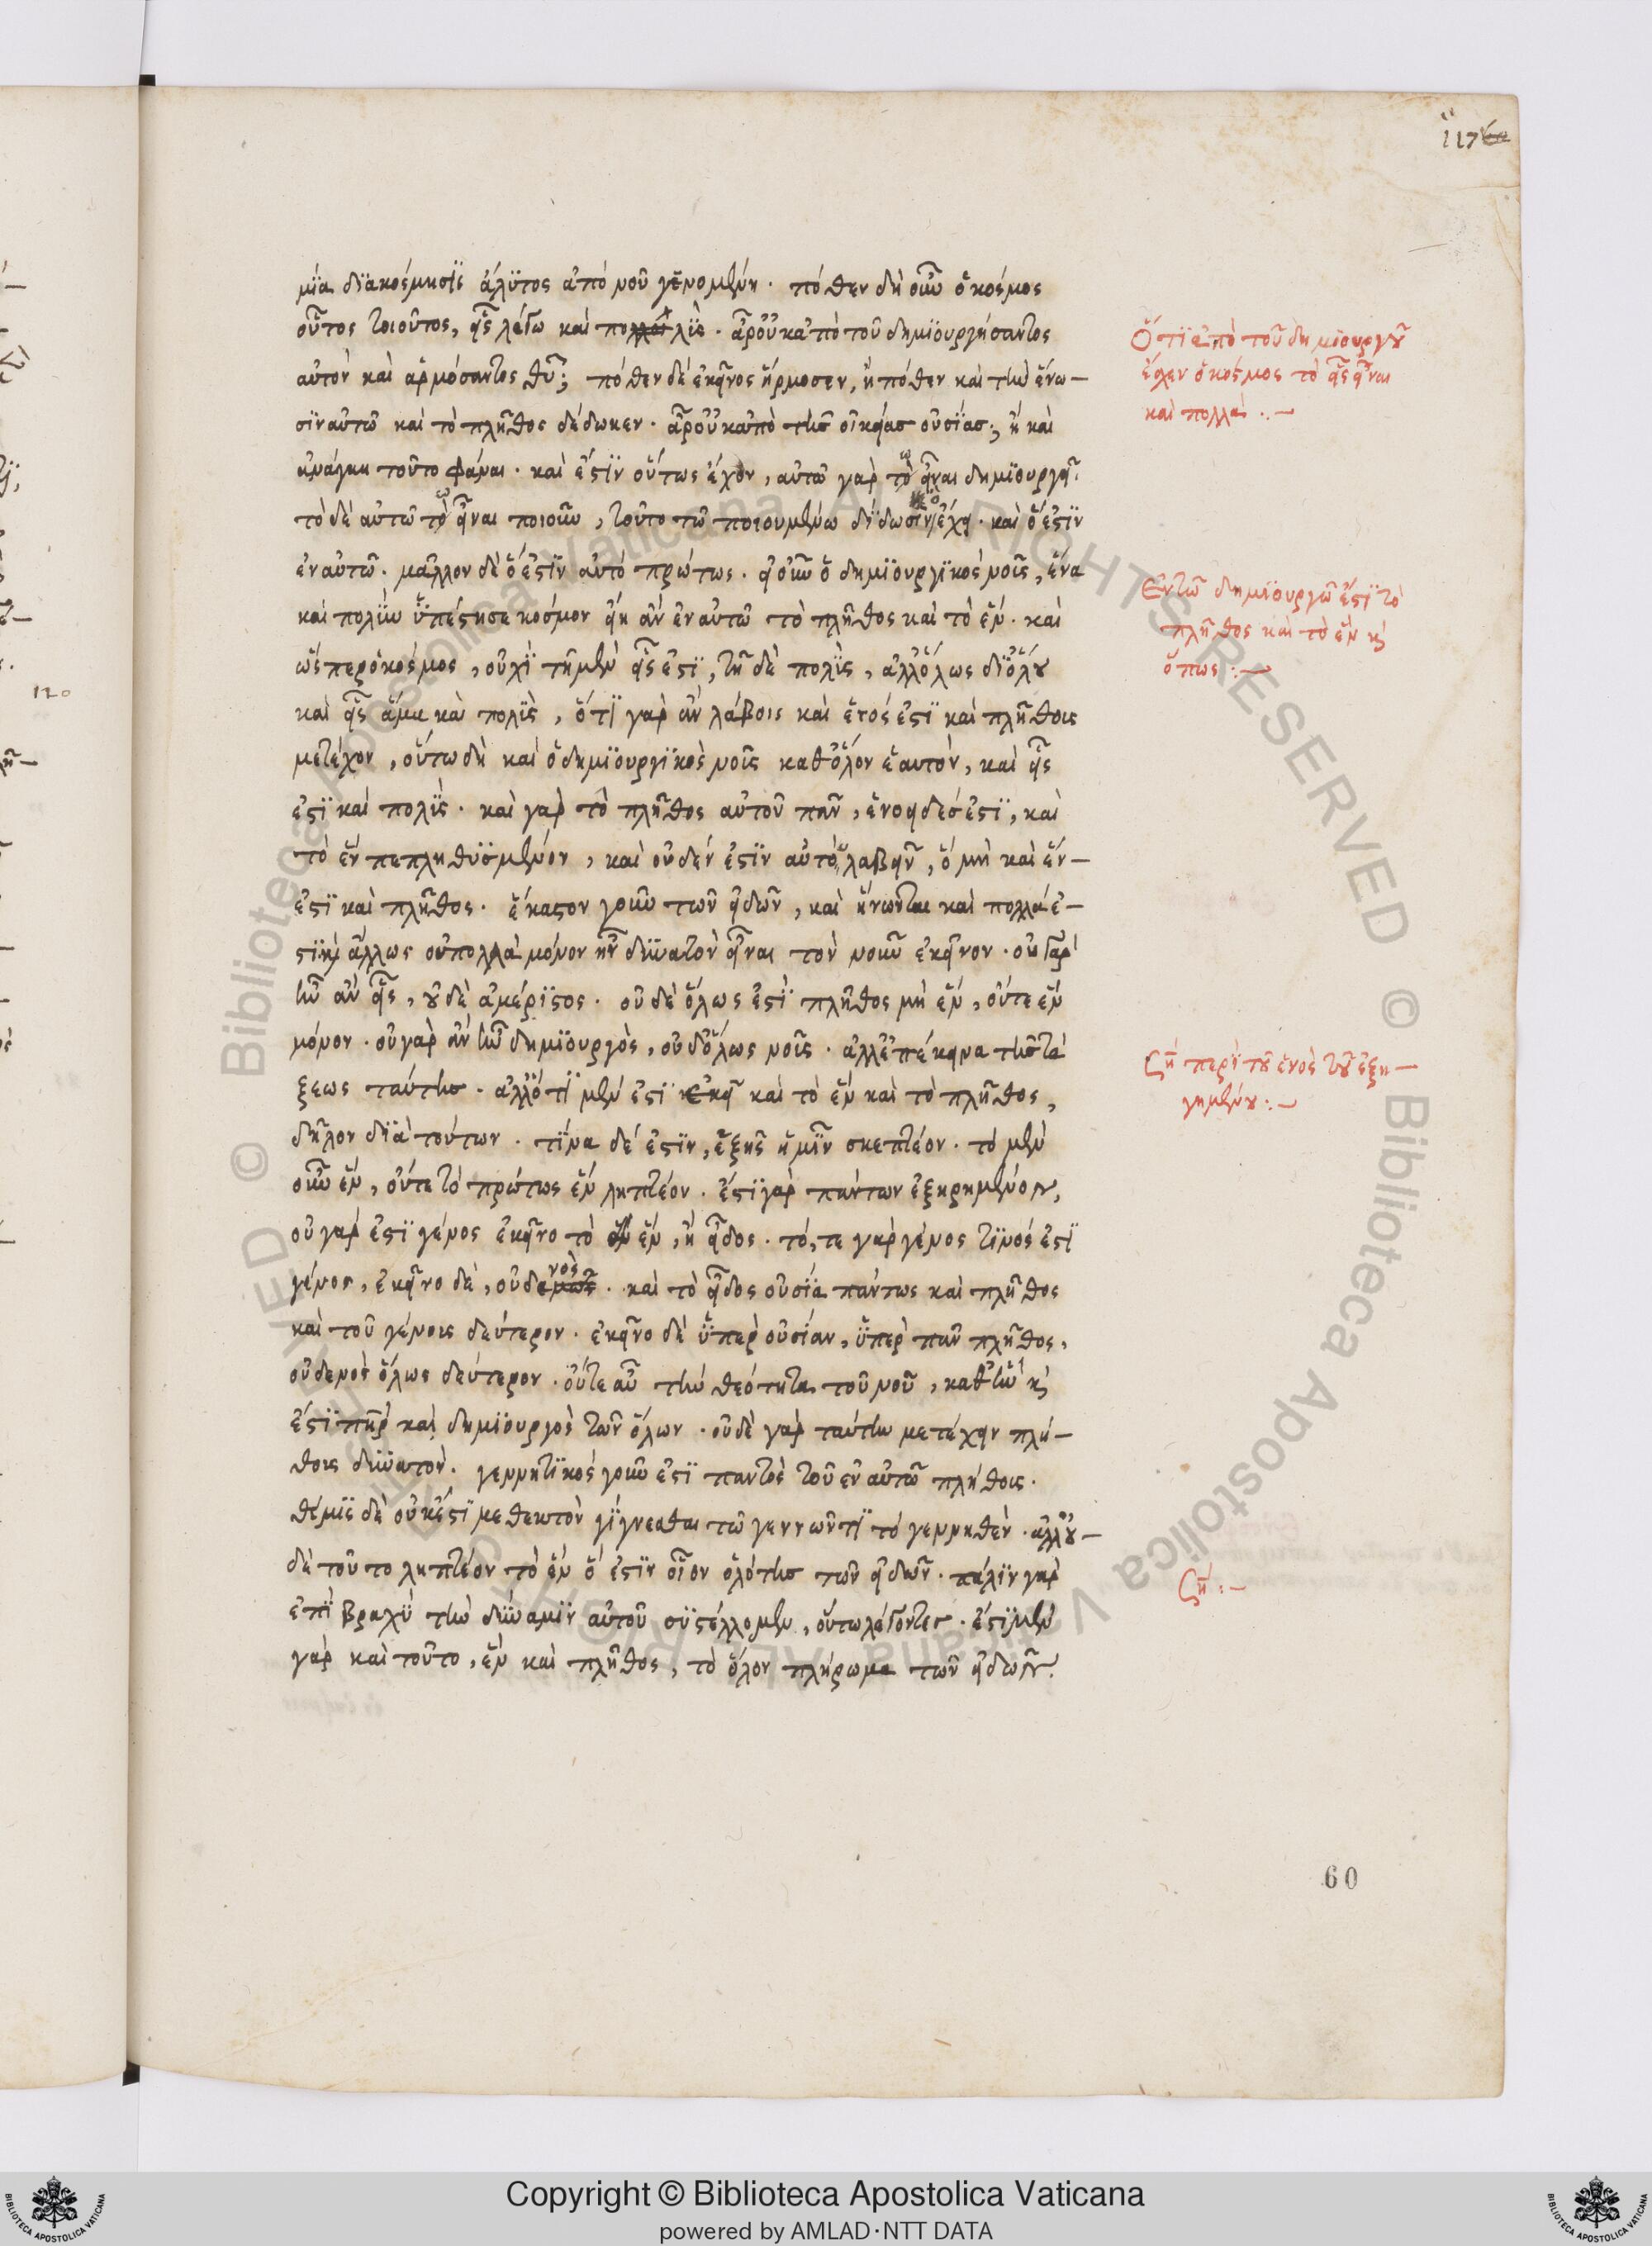 117
μία διακόσμησις ἄλυτος ἀπὸ νοῦ γενομένη · πόθεν δὴ οὖν ὁ κόσμος
οὗτος τοιοῦτος, εἷς λέγω καὶ πολύς · ἆρ' οὐκ ἀπὸ τοῦ δημιουργήσαντος
αὐτὸν καὶ ἁρμόσαντος θεοῦ; πόθεν δὲ ἐκεῖνος ἥρμοσεν, ἢ πόθεν καὶ τὴν ἕνω-
σιν αὐτῷ καὶ τὸ πλῆθος δέδωκεν · ἆρ' οὐκ ἀπὸ τῆς οἰκείας οὐσίας; ἢ καὶ
ἀνάγκη τοῦτο φάναι · καὶ ἔστιν οὕτως ἔχον, αὐτῷ γὰρ τῷ εἶναι δημιουργεῖ
τὸ δὲ αὐτῷ τῷ εἶναι ποιοῦν, τοῦτο τῷ ποιουμένῳ δίδωσιν ὃ ἔχει · καὶ ὅ ἐστιν
ἐν αὐτῷ · μᾶλλον δὲ ὅ ἐστιν αὐτὸ πρώτως · εἰ οὖν ὁ δημιουργικὸς νοῦς, ἕνα
καὶ πολὺν ὑπέστησε κόσμον εἴη ἂν ἐν αὐτῷ τὸ πλῆθος καὶ τὸ ἕν · καὶ
ὥσπερ ὁ κόσμος, οὐχὶ τῇ μὲν εἷς ἐστι, τῇ δὲ πολύς, ἀλλ' ὅλως δι' ὅλου
καὶ εἷς ἅμα καὶ πολύς, ὅ τι γὰρ ἂν λάβοις καὶ ἑνός ἐστι καὶ πλήθους
μετέχον, οὕτω δὴ καὶ ὁ δημιουργικὸς νοῦς καθ' ὅλον ἑαυτὸν, καὶ εἷς
ἐστι καὶ πολύς · καὶ γὰρ τὸ πλῆθος αὐτοῦ πᾶν, ἑνοειδές ἐστι, καὶ
τὸ ἓν πεπληθυσμένον, καὶ οὐδέν ἐστιν αὐτοῦ λαβεῖν, ὃ μὴ καὶ ἕν
ἐστι καὶ πλῆθος · ἕκαστον γοῦν τῶν εἰδῶν, καὶ ἥνωται καὶ πολλά ἐ-
στιν ἄλλως οὐ πολλὰ μόνον ἦν δυνατὸν εἶναι τὸν νοῦν ἐκεῖνον · οὐ γὰρ
ἦν ἂν εἷς, οὐδὲ ἀμέριστος · οὐδὲ ὅλως ἐστὶ πλῆθος μὴ ἕν, οὔτε ἓν
μόνον · οὐ γὰρ ἂν ἦν δημιουργὸς, οὐδ' ὅλως νοῦς · ἀλλ' ἐπέκεινα τῆς τά
ξεως ταύτης · ἀλλ' ὅτι μέν ἐστι ἐκεῖ καὶ τὸ ἓν καὶ τὸ πλῆθος,
δῆλον διὰ τούτων · τίνα δέ ἐστιν, ἑξῆς ἡμῖν σκεπτέον · τὸ μὲν
οὖν ἓν, οὔτε τὸ πρώτως ἓν ληπτέον · ἔστι γὰρ πάντων ἐξῃρημένον,
οὐ γάρ ἐστι γένος ἐκεῖνο τὸ ἓν, ἢ εἶδος · τό, τε γὰρ γένος τινός ἐστι
γένος, ἐκεῖνο δὲ, οὐδενός · καὶ τὸ εἶδος οὐσία πάντως καὶ πλῆθος
καὶ τοῦ γένους δεύτερον · ἐκεῖνο δὲ ὑπὲρ οὐσίαν, ὑπὲρ πᾶν πλῆθος,
οὐδενὸς ὅλως δεύτερον · οὔτε αὖ τὴν θεότητα τοῦ νοῦ, καθ' ἣν καὶ
ἔστι πατὴρ καὶ δημιουργὸς τῶν ὅλων · οὐδὲ γὰρ ταύτην μετέχειν πλή-
θους δυνατόν · γεννητικὸς γοῦν ἐστι παντὸς τοῦ ἐν αὐτῷ πλήθους ·
θέμις δὲ οὐκ ἔστι μεθεκτὸν γίγνεσθαι τῷ γεννῶντι τὸ γεννηθέν · ἀλλ' οὐ-
δὲ τοῦτο ληπτέον τὸ ἓν ὅ ἐστιν οἷον ὁλότης τῶν εἰδῶν · πάλιν γὰρ
ἐπὶ βραχὺ τὴν δύναμιν αὐτοῦ συστέλλομεν, οὕτω λέγοντες · ἔστι μὲν
γὰρ καὶ τοῦτο, ἓν καὶ πλῆθος, τὸ ὅλον πλήρωμα τῶν εἰδῶν.
Ὅτι ἀπὸ τοῦ δημιουργοῦ
ἔχει ὁ κόσμος τὸ εἷς εἶναι
καὶ πολλά :-
Ἐν τῷ δημιουργῷ ἐστὶ τὸ
πλῆθος καὶ τὸ ἓν καὶ
ὅπως :-
ση περὶ τοῦ ἑνὸς τοῦ ἐξη-
γημένου :-
ση :-
120
60
© Biblioteca Apostolica Vaticana ALL RIGHTS RESERVED
Copyright © Biblioteca Apostolica Vaticana
powered by AMLAD·NTT DATA
BIBLIOTECA APOSTOLICA VATICANA
BIBLIOTECA APOSTOLICA VATICANA